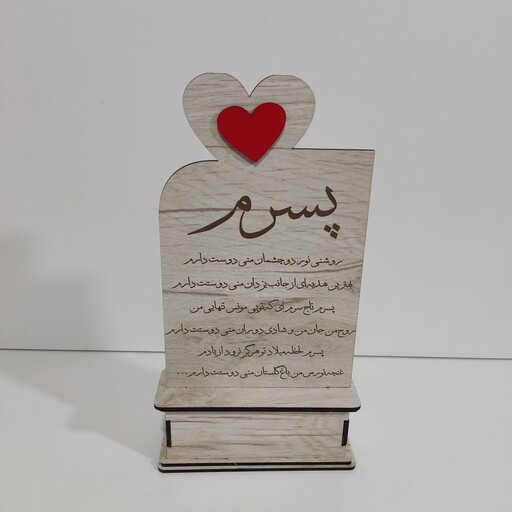 پسرم
روشنی نور دو چشمان منی دوستت دارم
بهترین هدیه‌ای از جانب یزدان منی دوستت دارم
پسرم تاج سرم ای که تویی مونس تنهایی من
روح من جان من و شادی دوران منی دوستت دارم
پسرم لحظه میلاد تو هرگز نرود از یادم
غنچه نورس من باغ گلستان منی دوستت دارم...